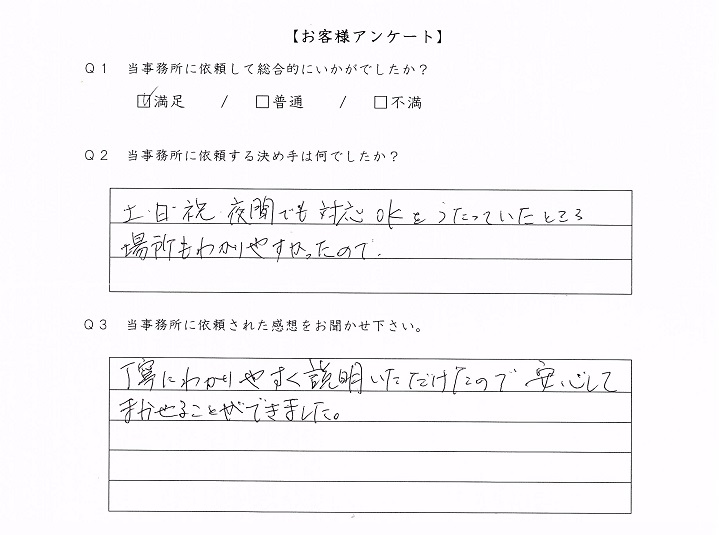 【お客様アンケート】
Q1 当事務所に依頼して総合的にいかがでしたか?
☑満足 / □普通 / □不満
Q2 当事務所に依頼する決め手は何でしたか?
土・日・祝 夜間でも 対応 OKを うたっていたところ
場所もわかりやすかったので.
Q3 当事務所に依頼された感想をお聞かせ下さい。
丁寧にわかりやすく説明いただけたので 安心して
まかせることができました。